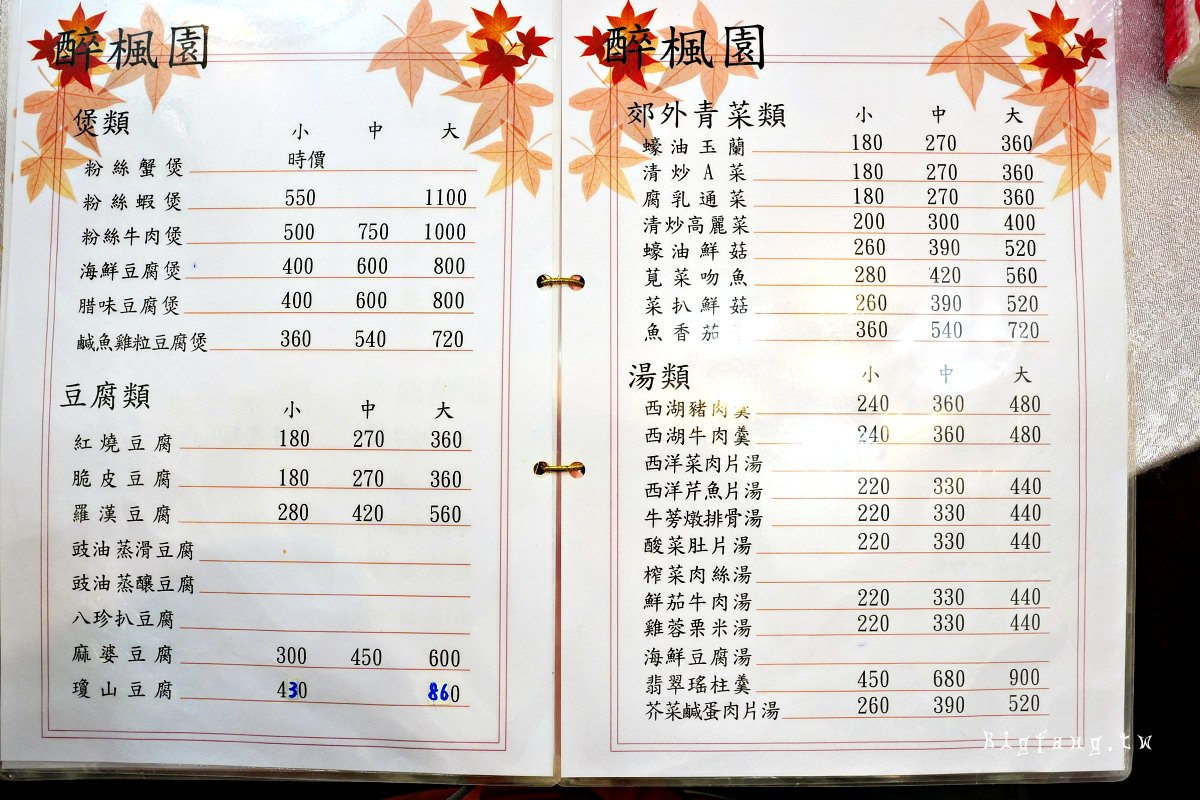 醉楓園
煲類
小 中 大
粉絲蟹煲 時價
粉絲蝦煲 550 1100
粉絲牛肉煲 500 750 1000
海鮮豆腐煲 400 600 800
腊味豆腐煲 400 600 800
鹹魚雞粒豆腐煲 360 540 720
豆腐類
小 中 大
紅燒豆腐 180 270 360
脆皮豆腐 180 270 360
羅漢豆腐 280 420 560
豉油蒸滑豆腐
豉油蒸釀豆腐
八珍扒豆腐
麻婆豆腐 300 450 600
瓊山豆腐 430 860
醉楓園
郊外青菜類 小 中 大
蠔油玉蘭 180 270 360
清炒A菜 180 270 360
腐乳通菜 180 270 360
清炒高麗菜 200 300 400
蠔油鮮菇 260 390 520
莧菜吻魚 280 420 560
菜扒鮮菇 260 390 520
魚香茄 360 540 720
湯類 小 中 大
西湖豬肉羹 240 360 480
西湖牛肉羹 240 360 480
西洋菜肉片湯
西洋芹魚片湯 220 330 440
牛蒡燉排骨湯 220 330 440
酸菜肚片湯 220 330 440
榨菜肉絲湯
鮮茄牛肉湯 220 330 440
雞蓉粟米湯 220 330 440
海鮮豆腐湯
翡翠瑤柱羹 450 680 900
芥菜鹹蛋肉片湯 260 390 520
Bigfang.tw